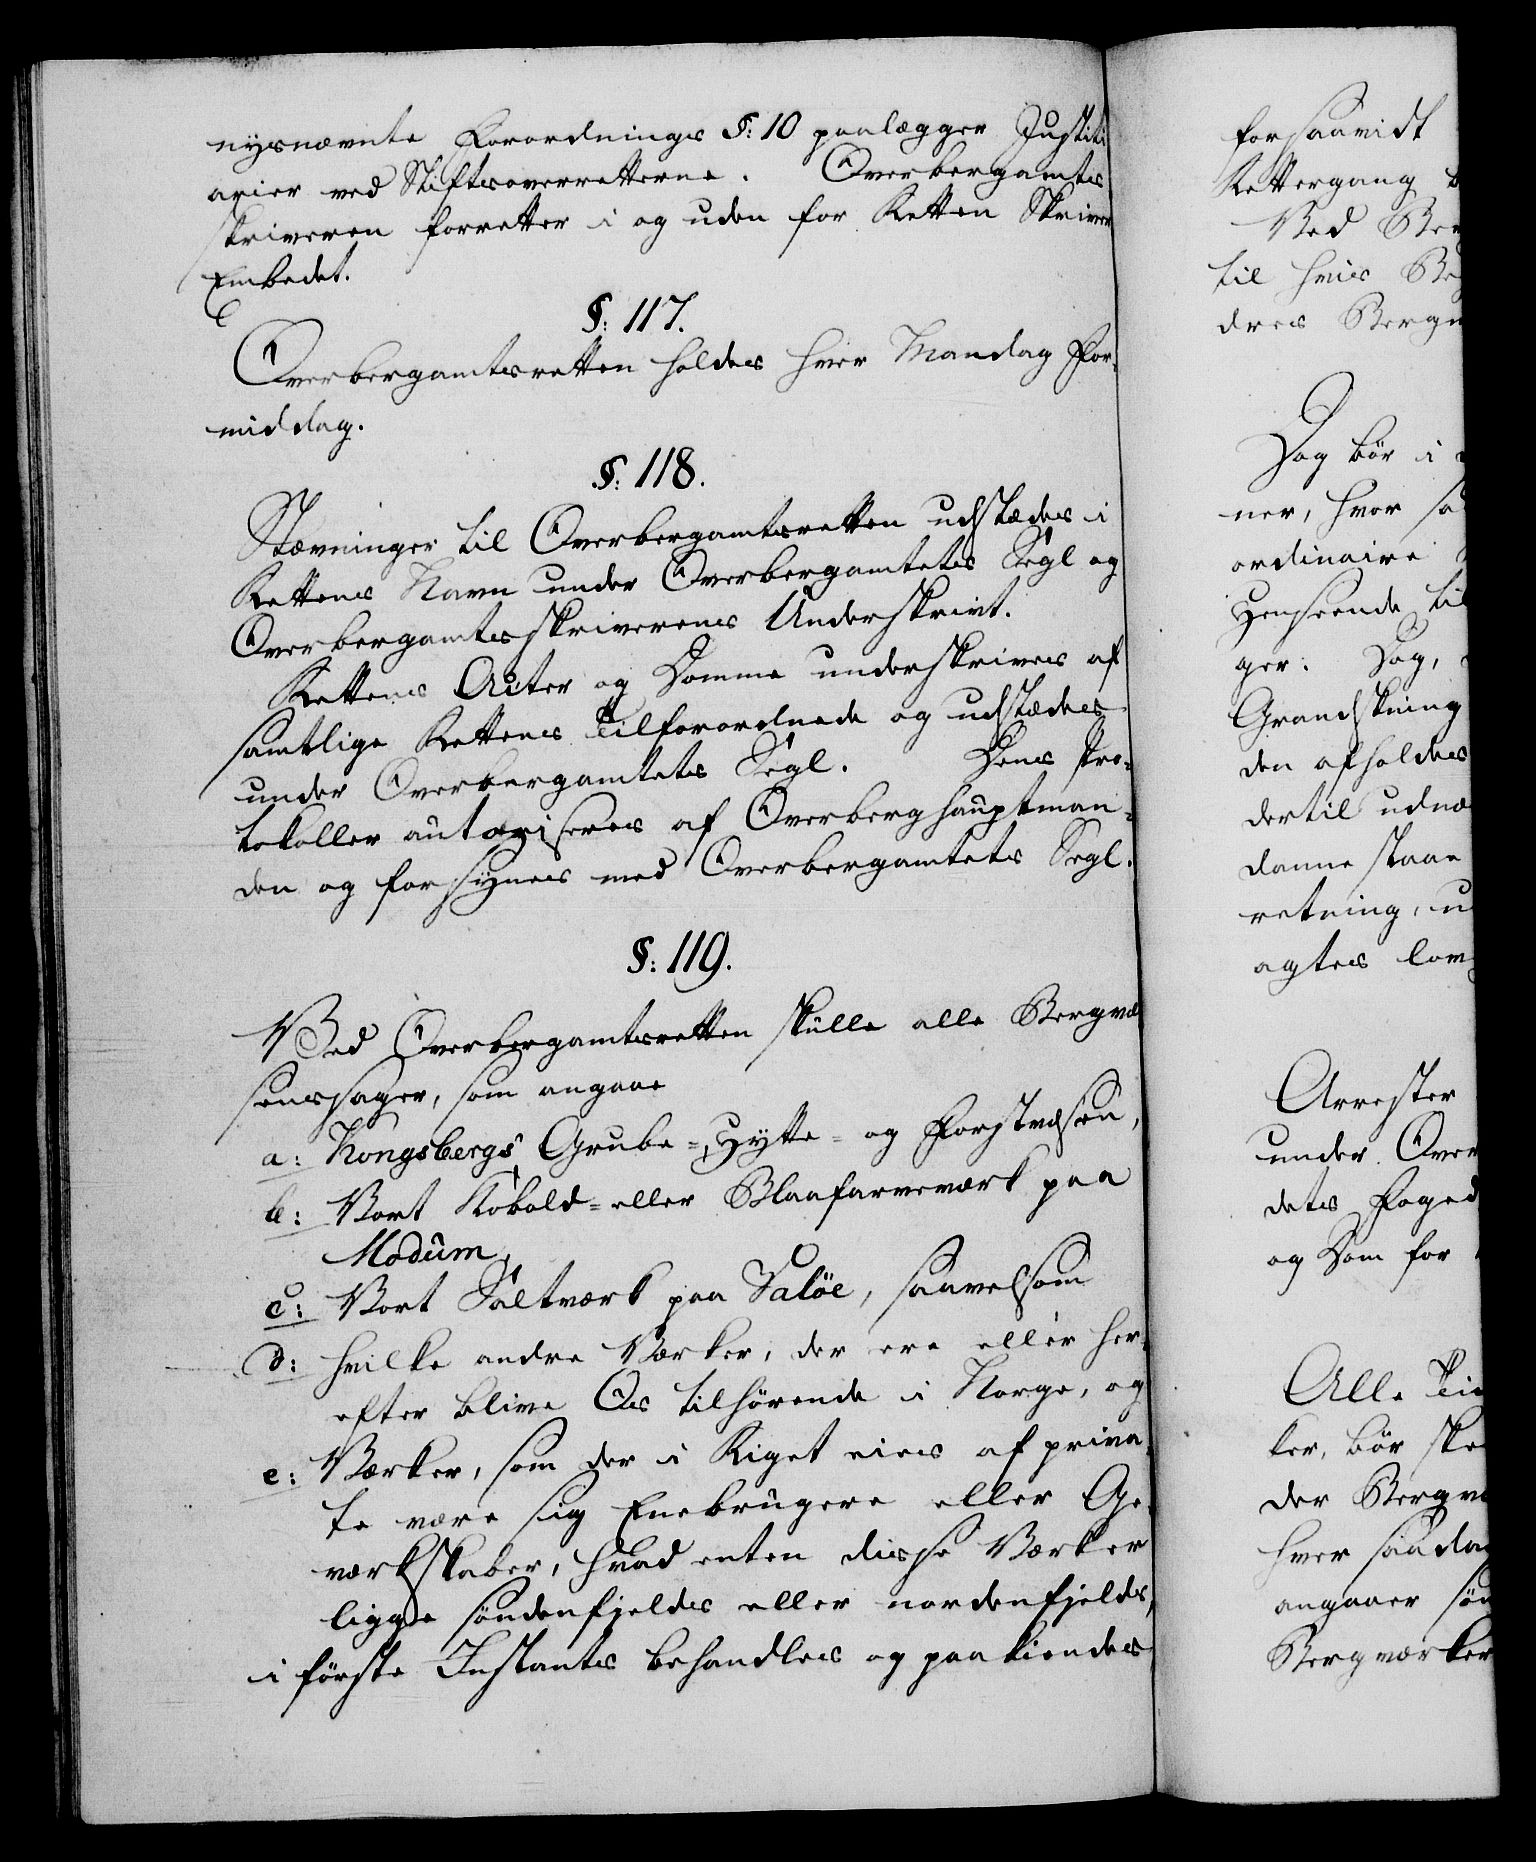 nysnævnte Forordnings §: 10 paalægger Justiti
arier ved Stiftsoverretterne. Overbergamts
skriveren forretter i og uden for Retten Skriver
Embedet.
§: 117.
Overbergamtsretten holdes hver Mandag For-
middag.
§: 118.
Stævninger til Overbergamtsretten udstædes i
Rettens Navn under Overbergamtets Segl og
Overbergamtsskriverens Underskrivt.
Rettens Acter og Domme underskrives af
samtlige Rettens Tilforordnede og udstædes
under Overbergamtets Segl. Dens Pro-
tokoller autoriseres af Overberghauptman-
den og forsynes med Overbergamtets Segl.
§: 119.
Ved Overbergamtsretten skulle alle Bergvæ
senssager, som angaae
a: Kongsbergs Grube-, Hytte- og Forstvæsen,
b: Vort Kobold- eller Blaafarveværk paa
Modum,
c: Vort Saltværk paa Valöe, saavelsom
d: hvilke andre Værker, der ere eller her-
efter blive Os tilhörende i Norge, og
e: Værker, som der i Riget eies af priva-
te være sig Enebrugere eller Ge-
værkskaber, hvad enten disse Værker
ligge söndenfjelds eller nordenfjelds,
i förste Instants behandles og paakiendes
forsaavidt
Rettergang
Ved
til hvis
dres
Dog bör i
ner, hvor
ordinaire
Henseende til
ger. Dog,
Grandskning
den afholdes
dertil
danne staae
retning,
agtes
Arrester
under
dets Foged
og Dom for
Alle
ker, bör
der
hver
angaaer
Bergværker